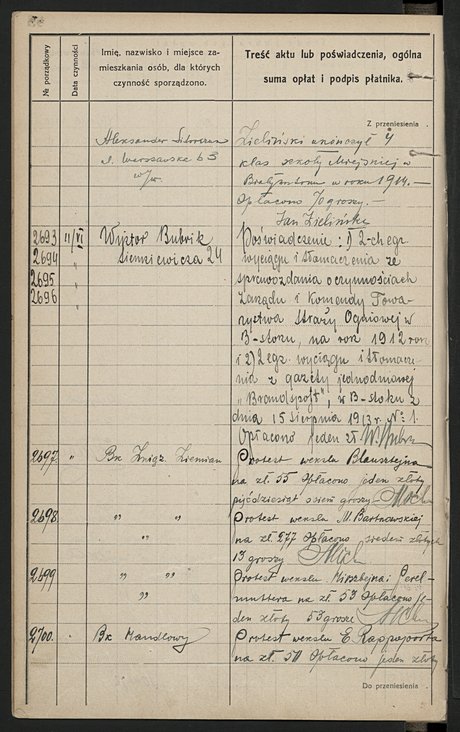 № porządkowy
Data czynności
Imię, nazwisko i miejsce za-
mieszkania osób, dla których
czynność sporządzono.
Treść aktu lub poświadczenia, ogólna
suma opłat i podpis płatnika.
Z przeniesienia
Aleksander
ul. Warszawska 63
w/m.
Zieliński ukończył 4
klas szkoły Miejskiej w
Białymstoku w roku 1914.—
Opłacono 70 groszy.—
Jan Zieliński
2693 11/VI Wiktor Bubrik
2694 " Sienkiewicza 24
2695 "
2696 "
Poświadczenie: 1) 2-ch egz.
wyciągu i tłomaczenia ze
sprawozdania o czynnościach
Zarządu i Komendy Towa-
rzystwa Straży Ogniowej w
B-stoku, na rok 1912 rok
i 2) 2 egz. wyciągu i tłomacze-
nia z gazety jednodniowej
w B-stoku z
dnia 15 sierpnia 1913 r. № 1.
Opłacono jeden zł
2697 " Bk Związ. Ziemian
Protest weksla Blausztejna
na zł. 55 Opłacono jeden złoty
pięćdziesiąt osiem groszy
2698 " "
"
Protest weksla M. Bartnowskiej
na zł. 277 Opłacono siedem złotych
13 groszy
2699 " "
"
Protest weksla i Perel-
muttera na zł. 53 Opłacono je-
den złoty 53 grosze
2700. " Bk Handlowy
Protest weksla E. Rappoporta
na zł. 50 Opłacono jeden złoty
Do przeniesienia